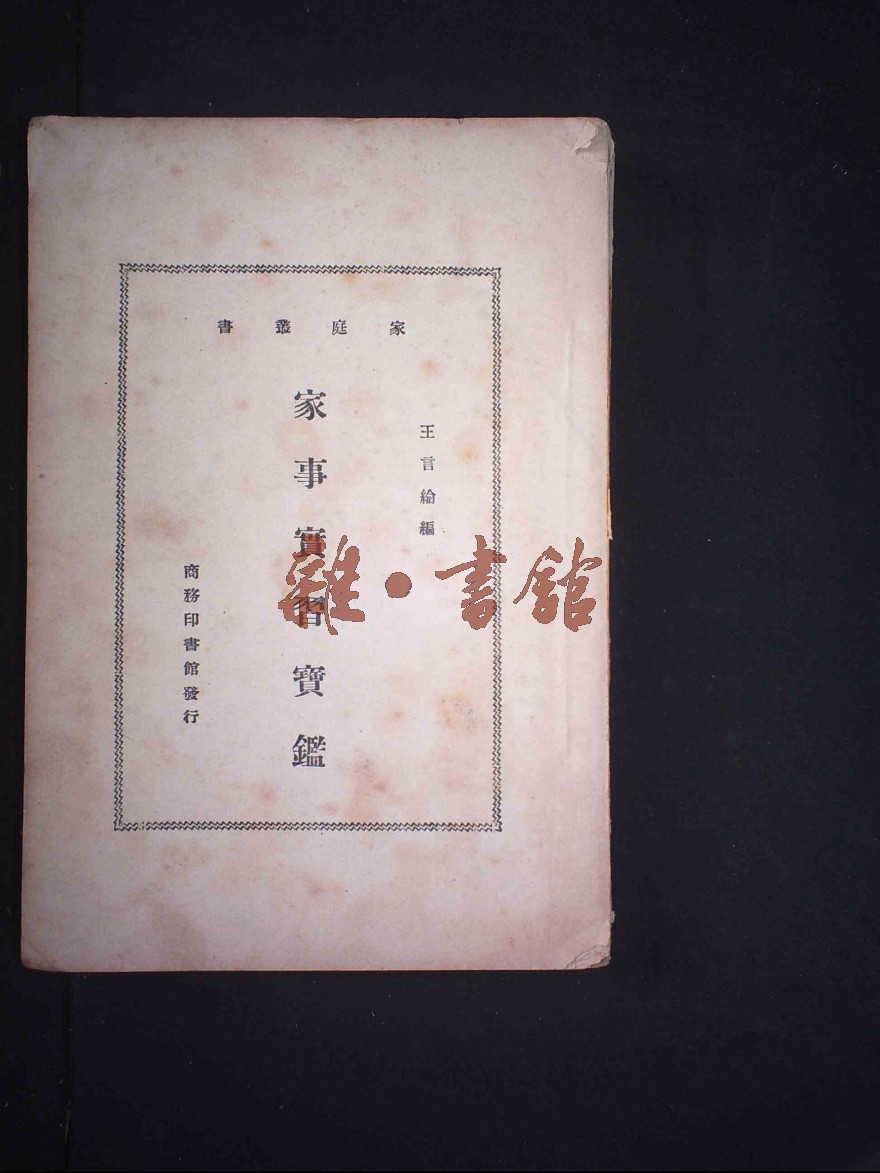 家庭叢書
王言綸編
家事實習寶鑑
商務印書館發行
雜・書館